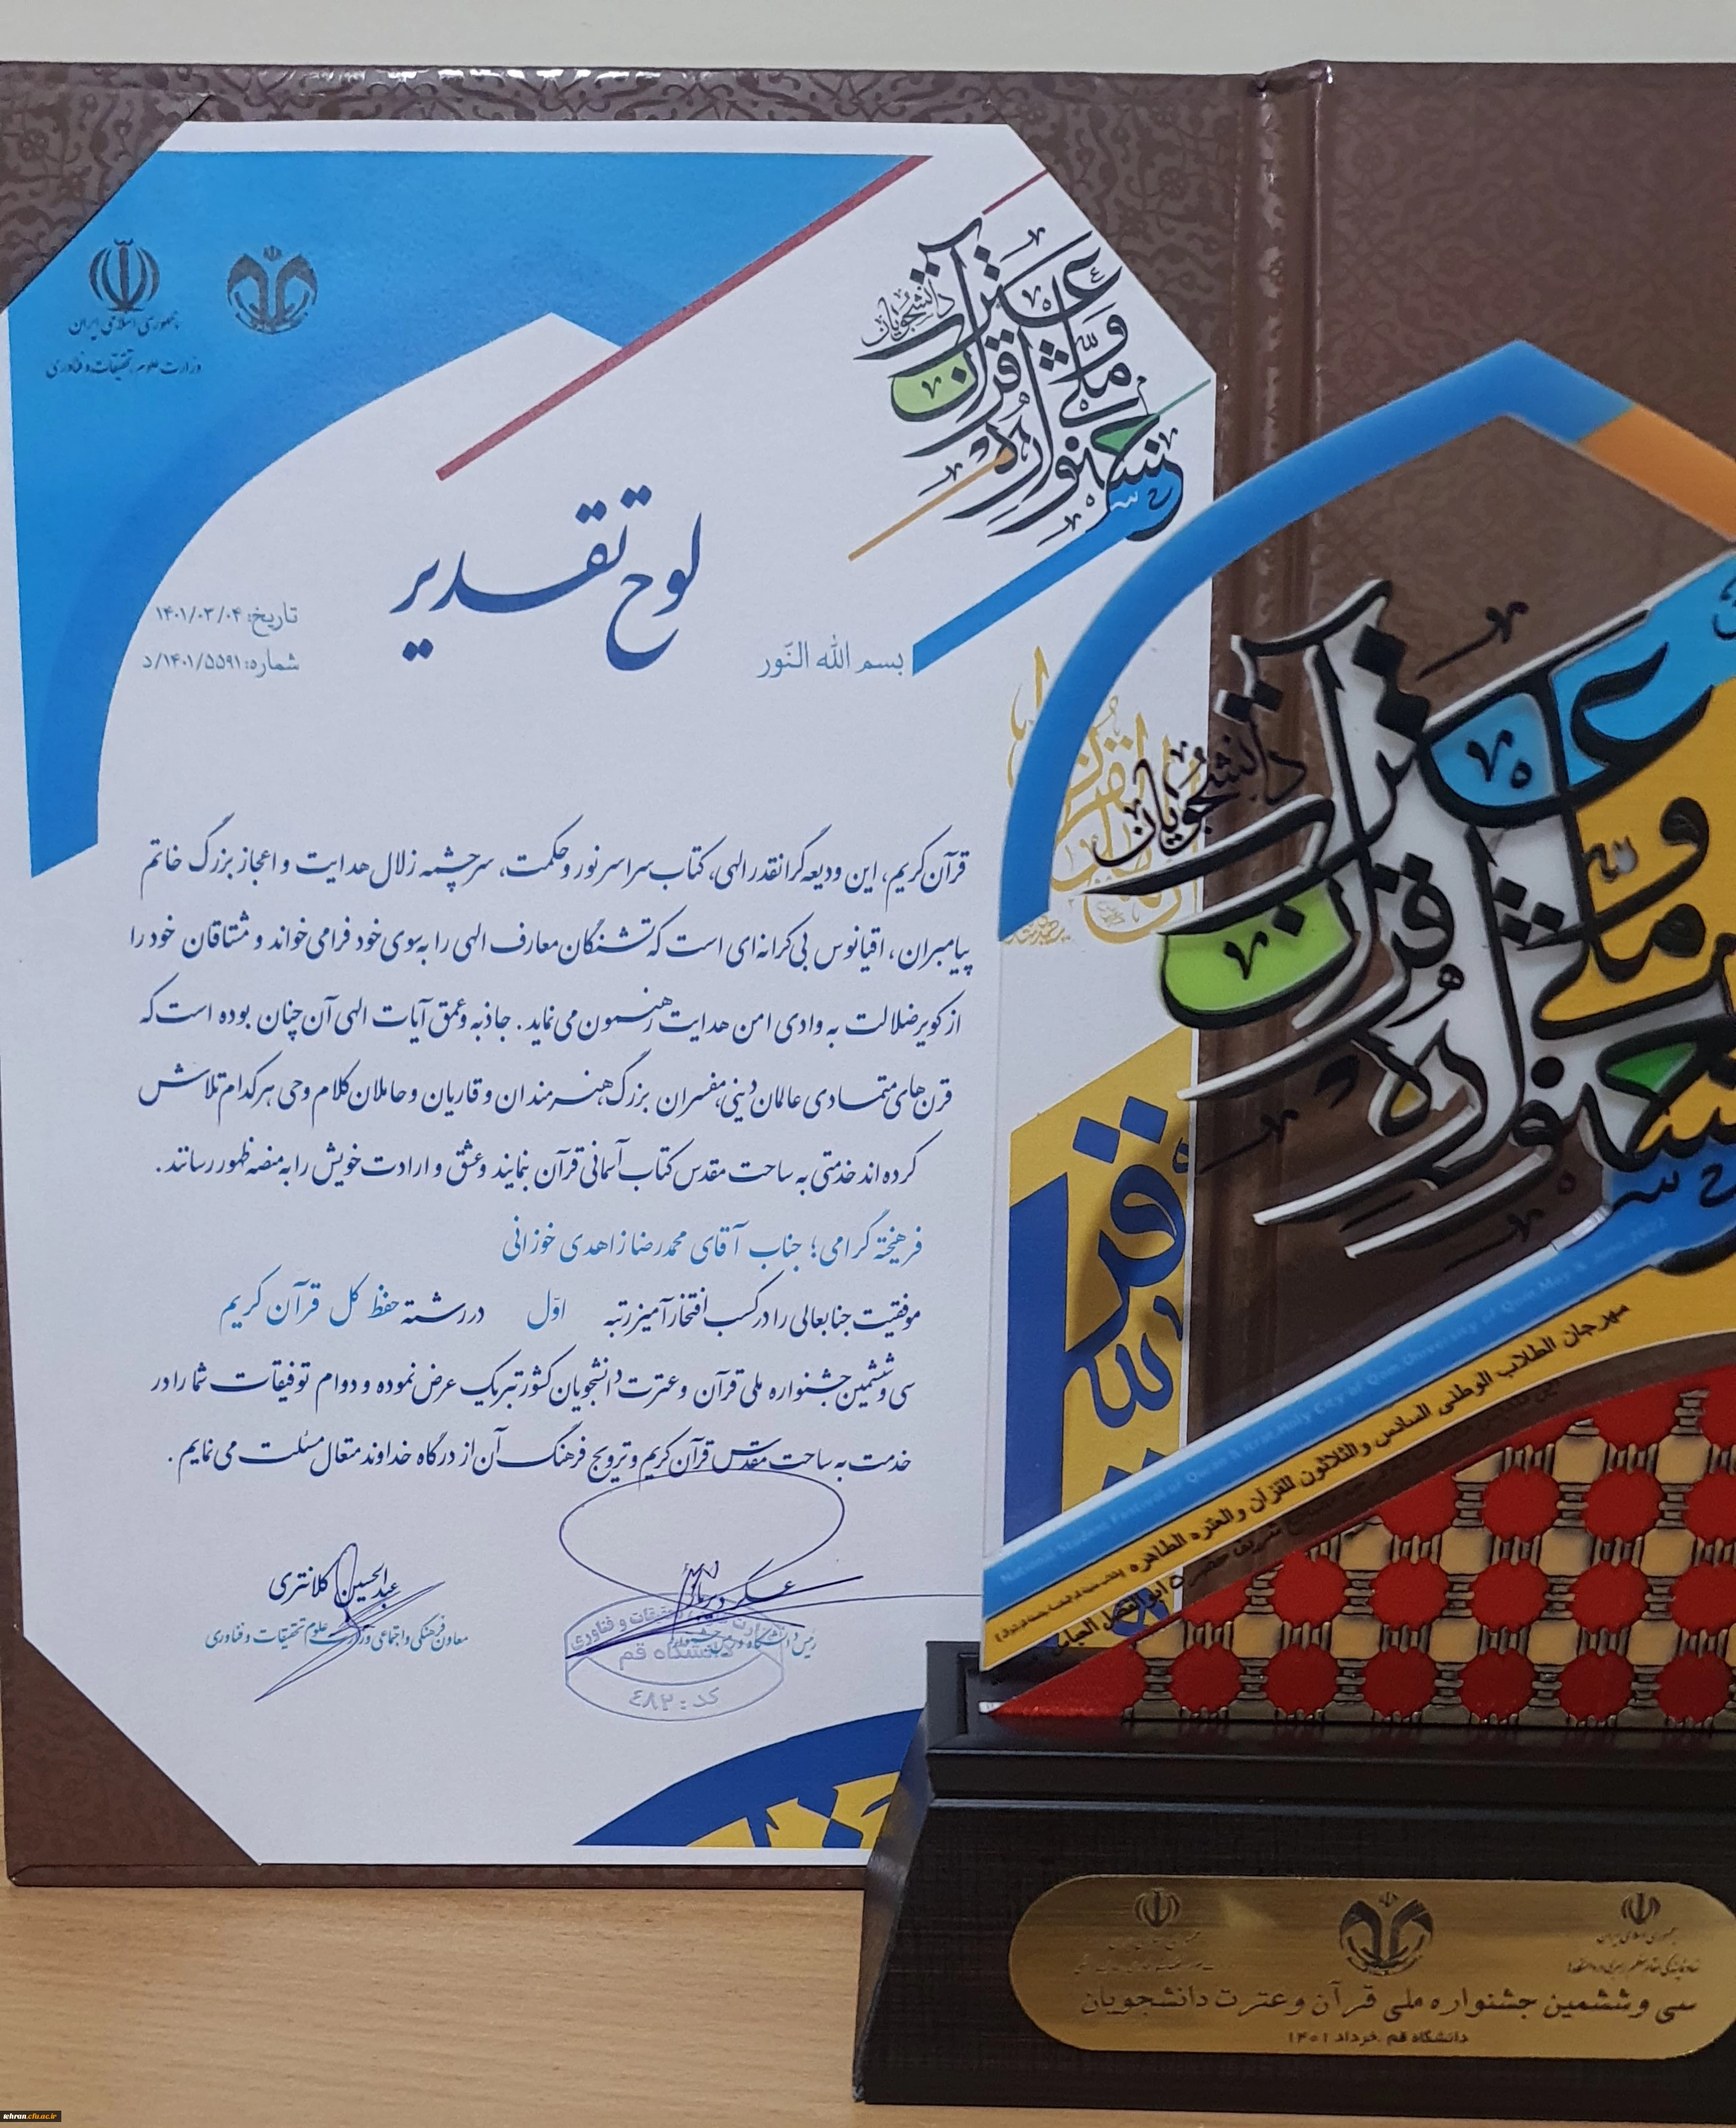 جمهوری اسلامی ایران
وزارت علوم، تحقیقات و فناوری
سی و ششمین جشنواره ملی قرآن و عترت دانشجویان
لوح تقدیر
تاریخ: ۱۴۰۱/۰۳/۰۴
شماره: ۱۴۰۱/۵۵۹۱/د
بسم الله النّور
قرآن کریم، این ودیعه گرانقدر الهی، کتاب سراسر نور و حکمت، سرچشمه زلال هدایت و اعجاز بزرگ خاتم
پیامبران، اقیانوس بی‌کرانه‌ای است که تشنگان معارف الهی را به سوی خود فرا می‌خواند و مشتاقان خود را
از کویر ضلالت به وادی امن هدایت رهنمون می‌نماید. جاذبه و عمق آیات الهی آن چنان بوده است که
قرن‌های متمادی عالمان دینی، مفسران بزرگ، هنرمندان و قاریان و حاملان کلام وحی هر کدام تلاش
کرده اند خدمتی به ساحت مقدس کتاب آسمانی قرآن بنمایند و عشق و ارادت خویش را به منصه ظهور رسانند.
فرهیخته گرامی؛ جناب آقای محمدرضا زاهدی خوزانی
موفقیت جنابعالی را در کسب افتخارآمیز رتبه اوّل در رشته حفظ کل قرآن کریم
سی و ششمین جشنواره ملی قرآن و عترت دانشجویان کشور تبریک عرض نموده و دوام توفیقات شما را در
خدمت به ساحت مقدس قرآن کریم و ترویج فرهنگ آن از درگاه خداوند متعال مسئلت می‌نمایم.
عبدالحسین کلانتری
معاون فرهنگی و اجتماعی وزارت علوم تحقیقات و فناوری
دانشگاه قم
کد: ٤٨٢
جشنواره ملی قرآن و عترت دانشجویان
National Student Festival of Quran & Etrat, Holy City of Qom, University of Qom, May & June, 2022
مهرجان الطلاب الوطنی السادس والثلاثون للقرآن والعترة الطاهرة
جمهوری اسلامی ایران
سی و ششمین جشنواره ملی قرآن و عترت دانشجویان
دانشگاه قم .خرداد ۱۴۰۱
tehran.cfu.ac.ir